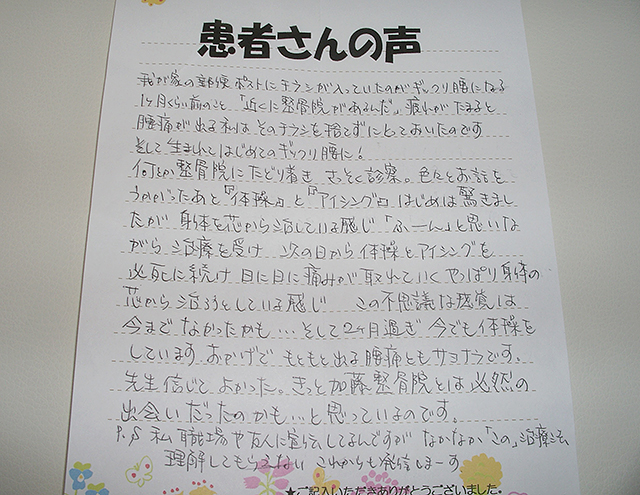 患者さんの声
我が家の郵便ポストにチラシが入っていたのがギックリ腰になる
1ヶ月くらい前のこと 「近くに整骨院があるんだ」疲れがたまると
腰痛が出る私は そのチラシを捨てずにとっておいたのです
そして生まれてはじめてのギックリ腰に!
何とか整骨院にたどり着き さっそく診察。色々とお話を
うかがったあと『体操』と『アイシング』はじめは驚きまし
たが 身体を芯から治している感じ「ふーん」と思いな
がら 治療を受け 次の日から体操とアイシングを
必死に続け 日に日に痛みが取れていく やっぱり身体の
芯から治ろうとしている感じ この不思議な感覚は
今までなかったかも… そして2ヶ月過ぎ 今でも体操を
しています おかげで もともと出る腰痛ともサヨナラです。
先生信じて よかった。きっと加藤整骨院とは必然の
出会いだったのかも…と思っているのです。
P.S 私 職場や友人に宣伝してるんですが なかなか「この」治療法
理解してもらえない これからも発信しまーす
★ご記入いただきありがとうございました。